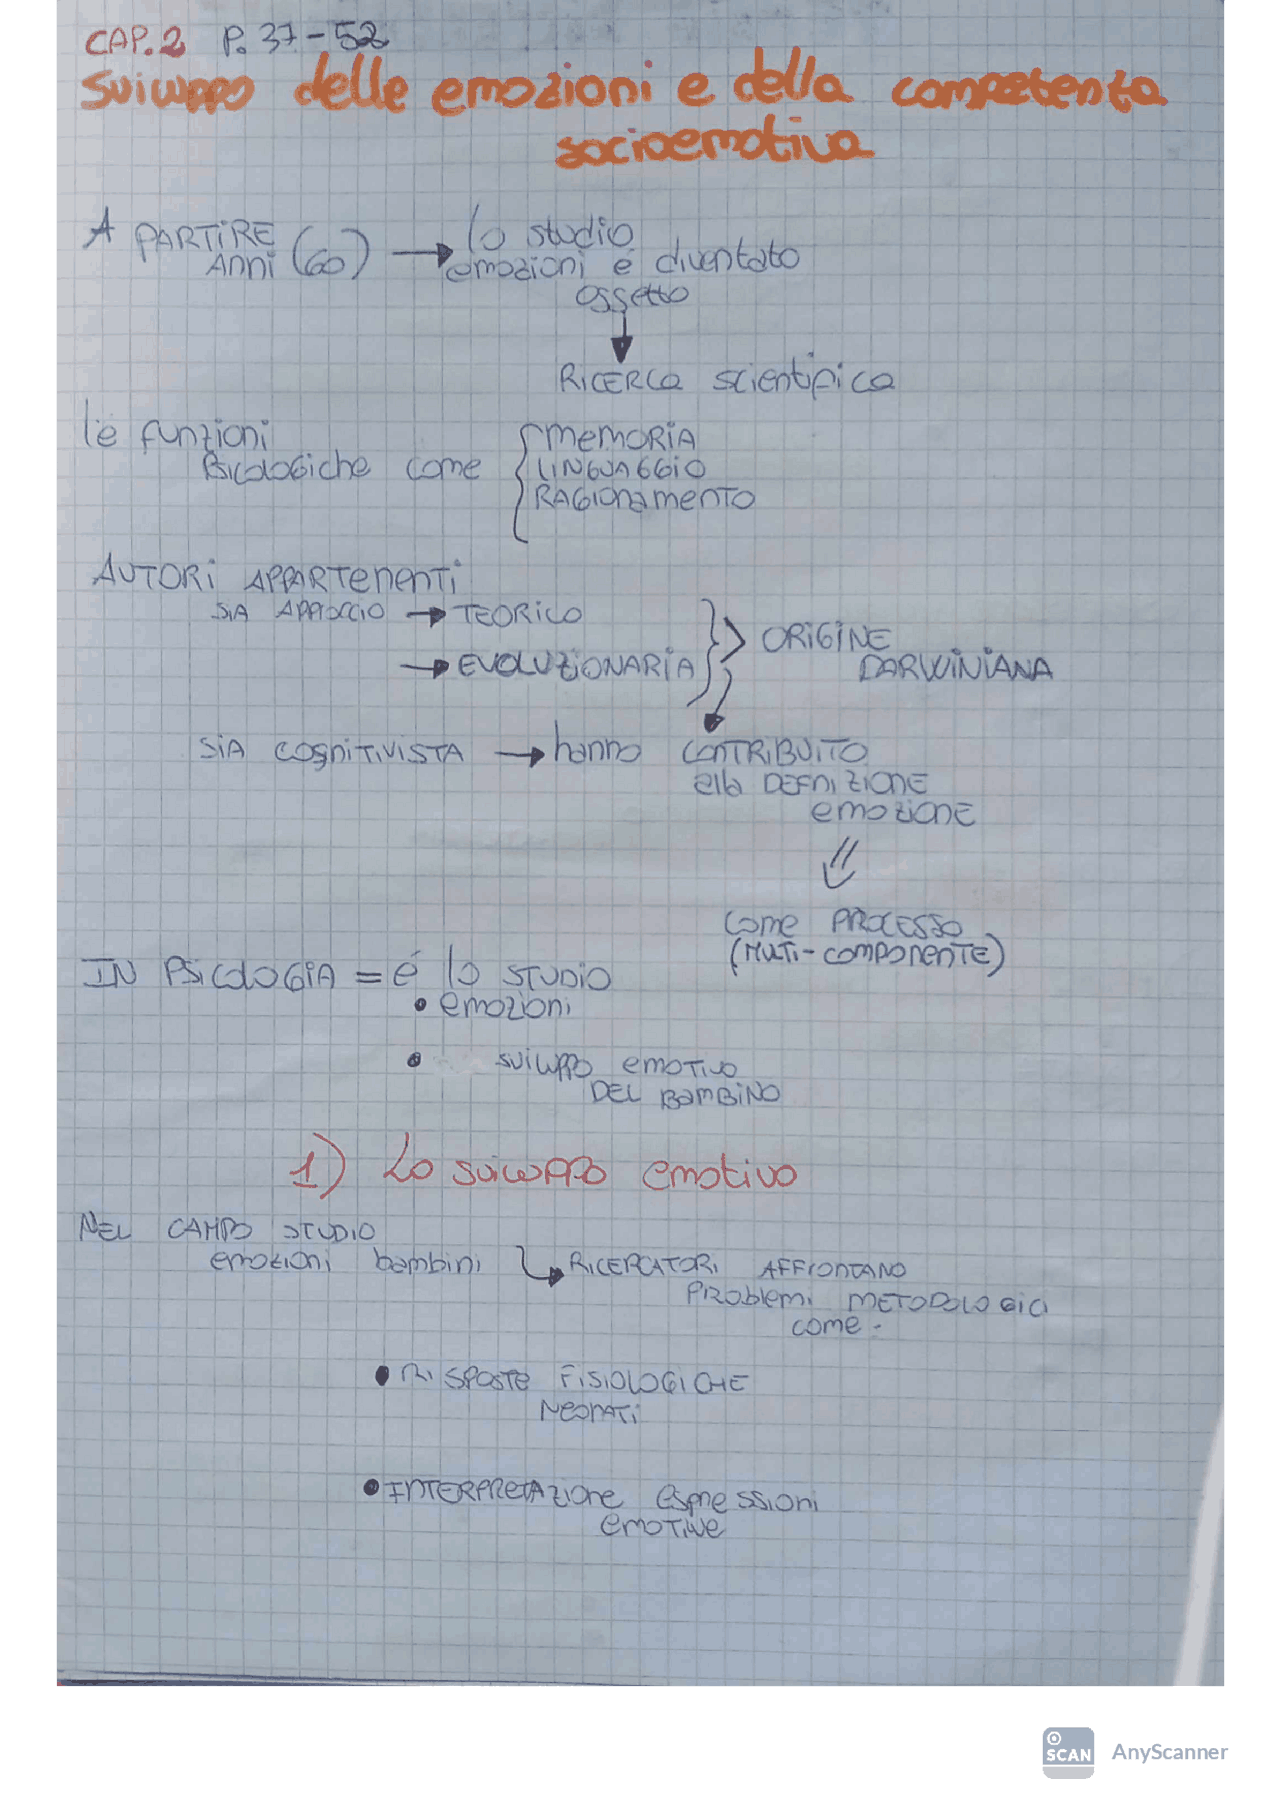 CAP.2 P. 37-52
Sviluppo delle emozioni e della competenta
socioemotiva
A PARTIRE
Anni (60) → lo studio
emozioni é diventato
oggetto
↓
RICERCA scientifica
le funzioni
Psicologiche come { MEMORIA
LINGUAGGIO
RAGIONAMENTO
AUTORI APPARTENENTI
SIA APPROCCIO → TEORICO
→ EVOLUZIONARIA
} > ORIGINE
DARWINIANA
SIA COGNITIVISTA → hanno CONTRIBUITO
alla DEFINIZIONE
emozIONE
⇓
Come PROCESSO
(MUTI-COMPONENTE)
IN PSICOLOGIA = é lo STUDIO
• emozioni
• sviluppo emoTivo
DEL BAMBINO
1) Lo sviluppo emotivo
NEL CAMPO STUDIO
emozioni bambini ↳ RICERCATORI AFFRONTANO
PROblemi METODOLOGICI
come.
• RISPOSTE FISIOLOGICHE
NEONATI
• INTERPRETAZIONE espressioni
EMOTIVE
SCAN AnyScanner